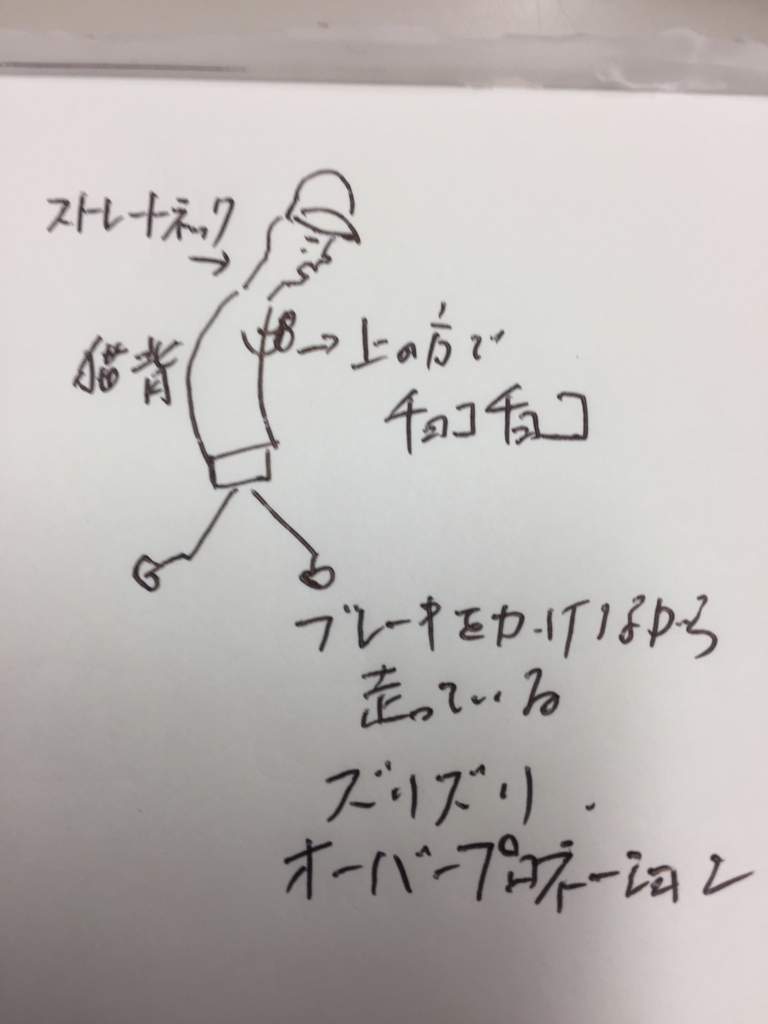 ストレートネック
→
猫背
→上の方で
チョコチョコ
ブレーキをかけながら
走っている
ズリズリ
オーバープロネーション